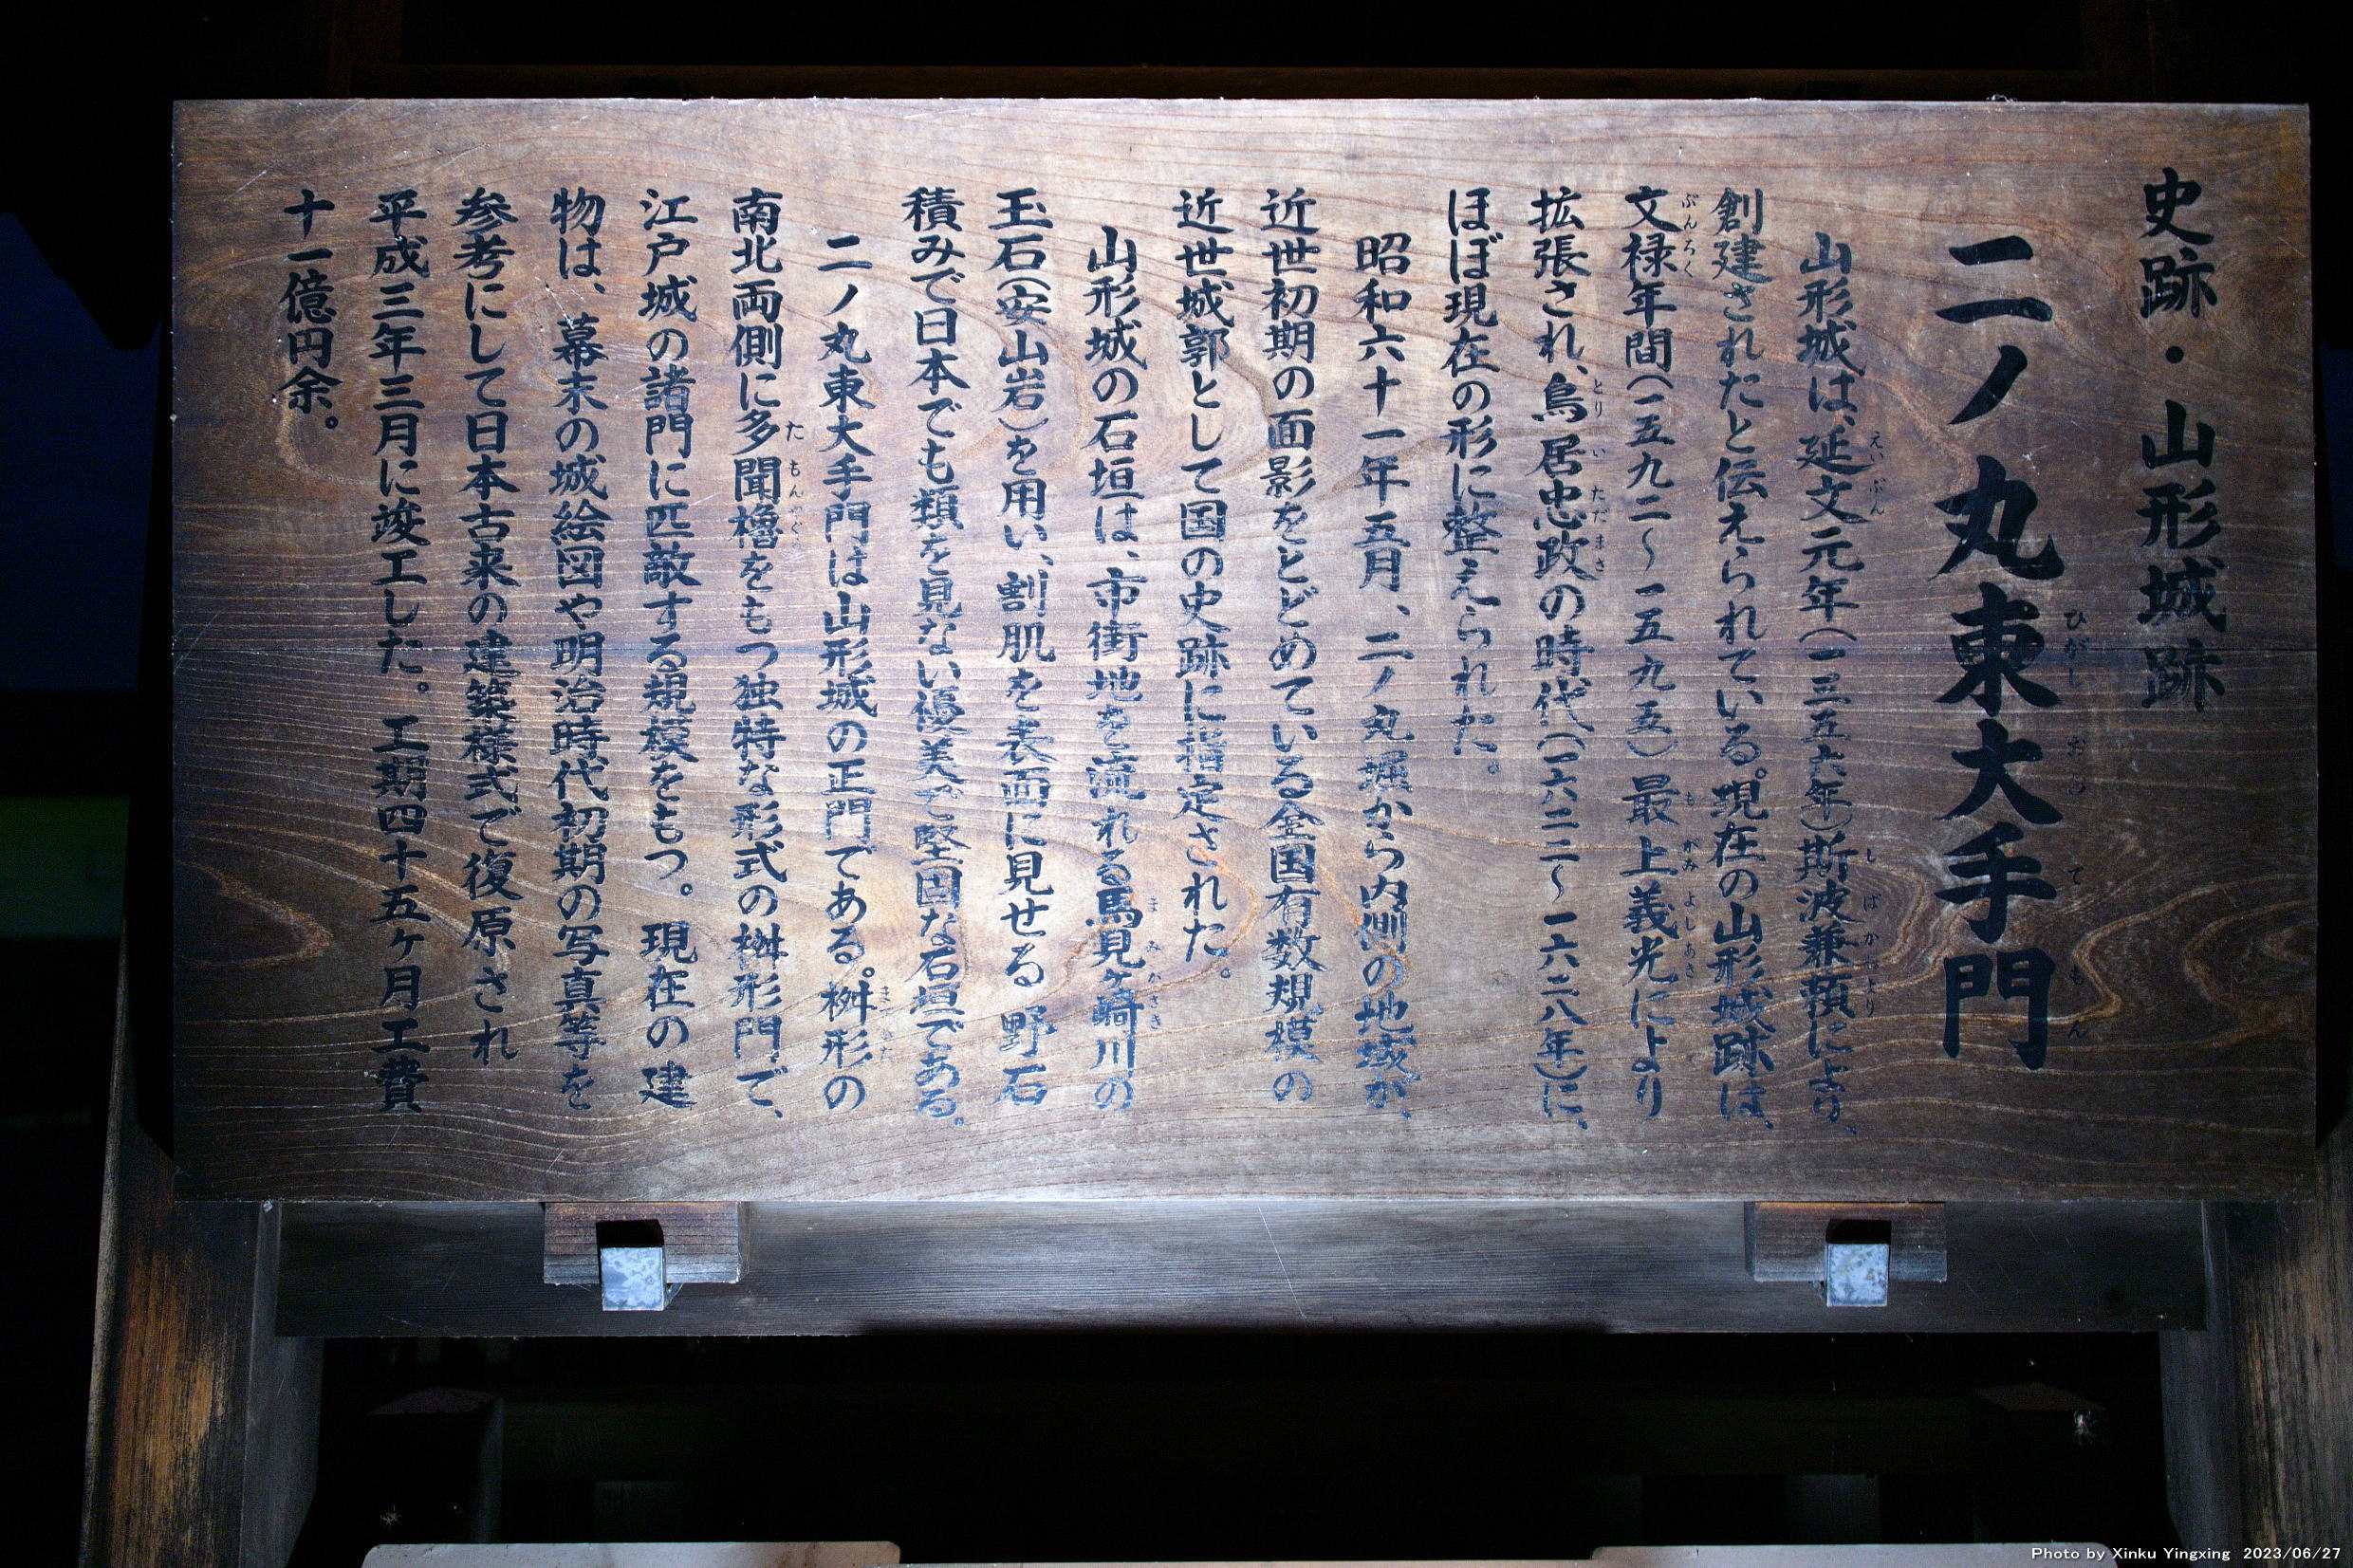 史跡・山形城跡
二ノ丸東大手門
ひがしおおてもん
山形城は、延文元年(一三五六年)斯波兼頼により、
えいぶん
しばかねより
創建されたと伝えられている。現在の山形城跡は、
文禄年間(一五九二〜一五九五)最上義光により
ぶんろく
もがみよしあき
拡張され、鳥居忠政の時代(一六二二〜一六二八年)に、
とりいただまさ
ほぼ現在の形に整えられた。
昭和六十一年五月、二ノ丸堀から内側の地域が、
近世初期の面影をとどめている全国有数規模の
近世城郭として国の史跡に指定された。
山形城の石垣は、市街地を流れる馬見ヶ崎川の
まみがさき
玉石(安山岩)を用い、割肌を表面に見せる野石
積みで日本でも類を見ない優美で堅固な石垣である。
二ノ丸東大手門は山形城の正門である。桝形の
ますがた
南北両側に多聞櫓をもつ独特な形式の桝形門で、
たもんやぐら
江戸城の諸門に匹敵する規模をもつ。現在の建
物は、幕末の城絵図や明治時代初期の写真等を
参考にして日本古来の建築様式で復原され
平成三年三月に竣工した。工期四十五ヶ月工費
十一億円余。
Photo by Xinku Yingxing 2023/06/27